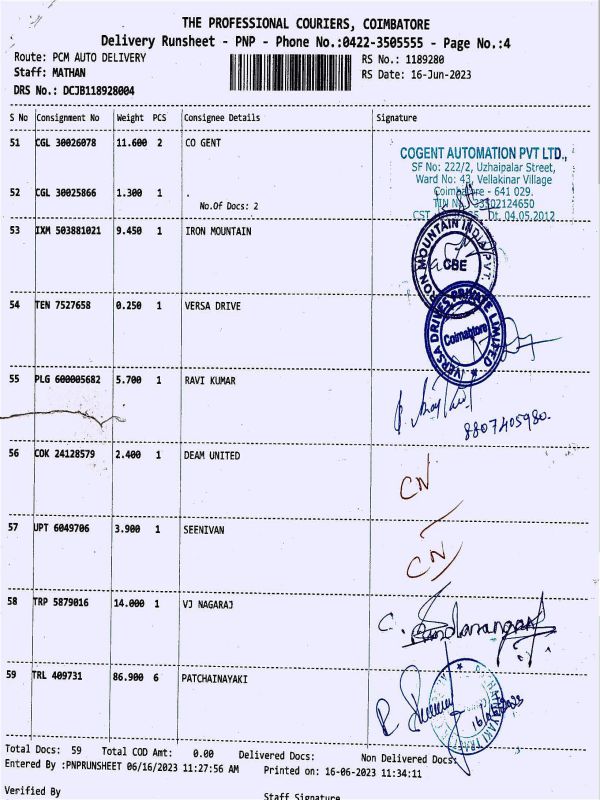 THE PROFESSIONAL COURIERS, COIMBATORE
Delivery Runsheet - PNP - Phone No.:0422-3505555 - Page No.:4
Route: PCM AUTO DELIVERY
RS No.: 1189280
Staff: MATHAN
RS Date: 16-Jun-2023
DRS No.: DCJB118928004
S No Consignment No Weight PCS Consignee Details Signature
51 CGL 30026078 11.600 2 CO GENT
COGENT AUTOMATION PVT LTD.,
SF No: 222/2, Uzhaipalar Street,
Ward No: 43, Vellakinar Village
52 CGL 30025866 1.300 1 .
Coimbatore - 641 029.
No.Of Docs: 2
TIN No 33302124650
CST Dt. 04.05.2012
53 IXM 503881021 9.450 1 IRON MOUNTAIN
IRON MOUNTAIN INDIA PVT.
CBE
54 TEN 7527658 0.250 1 VERSA DRIVE
VERSA DRIVES PRIVATE LIMITED
Coimbatore
55 PLG 600005682 5.700 1 RAVI KUMAR
8807405980.
56 COK 24128579 2.400 1 DEAM UNITED
CN
57 UPT 6049706 3.900 1 SEENIVAN
CN
58 TRP 5879016 14.000 1 VJ NAGARAJ
59 TRL 409731 86.900 6 PATCHAINAYAKI
Total Docs: 59 Total COD Amt: 0.00 Delivered Docs: Non Delivered Docs:
Entered By :PNPRUNSHEET 06/16/2023 11:27:56 AM Printed on: 16-06-2023 11:34:11
Verified By Staff Signature